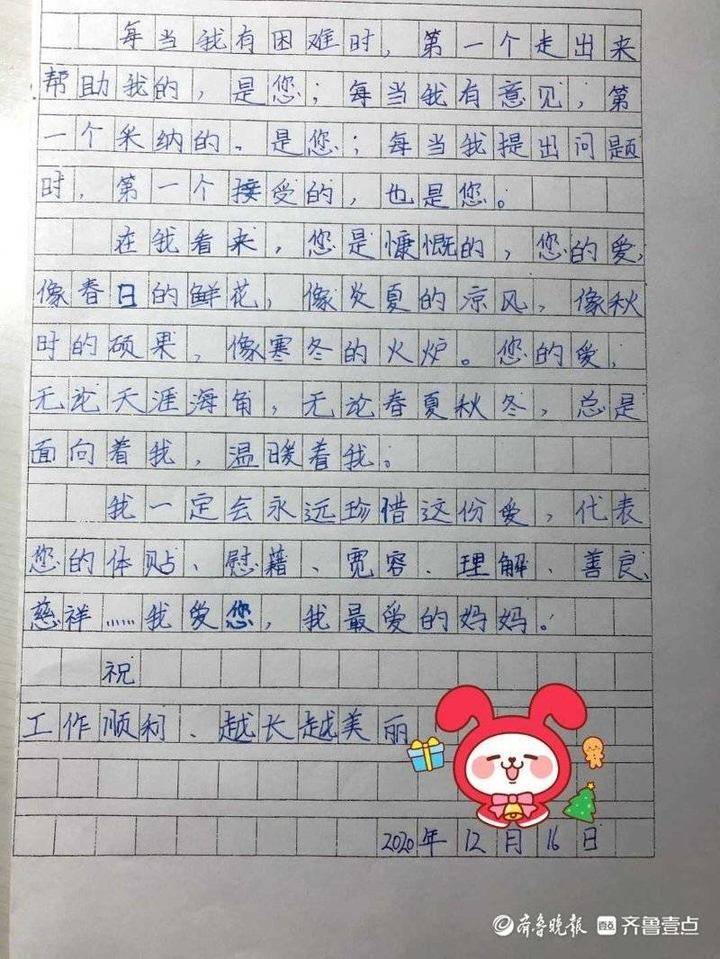 每当我有困难时，第一个走出来
帮助我的，是您；每当我有意见，第
一个采纳的。是您；每当我提出问题
时，第一个接受的，也是您。
在我看来，您是慷慨的，您的爱，
像春日的鲜花，像炎夏的凉风，像秋
时的硕果，像寒冬的火炉。您的爱，
无论天涯海角，无论春夏秋冬，总是
面向着我，温暖着我。
我一定会永远珍惜这份爱，代表
您的体贴、慰藉、宽容、理解、善良、
慈祥……我爱您，我最爱的妈妈。
祝
工作顺利、越长越美丽
2020年12月16日
齐鲁晚报 齐鲁壹点